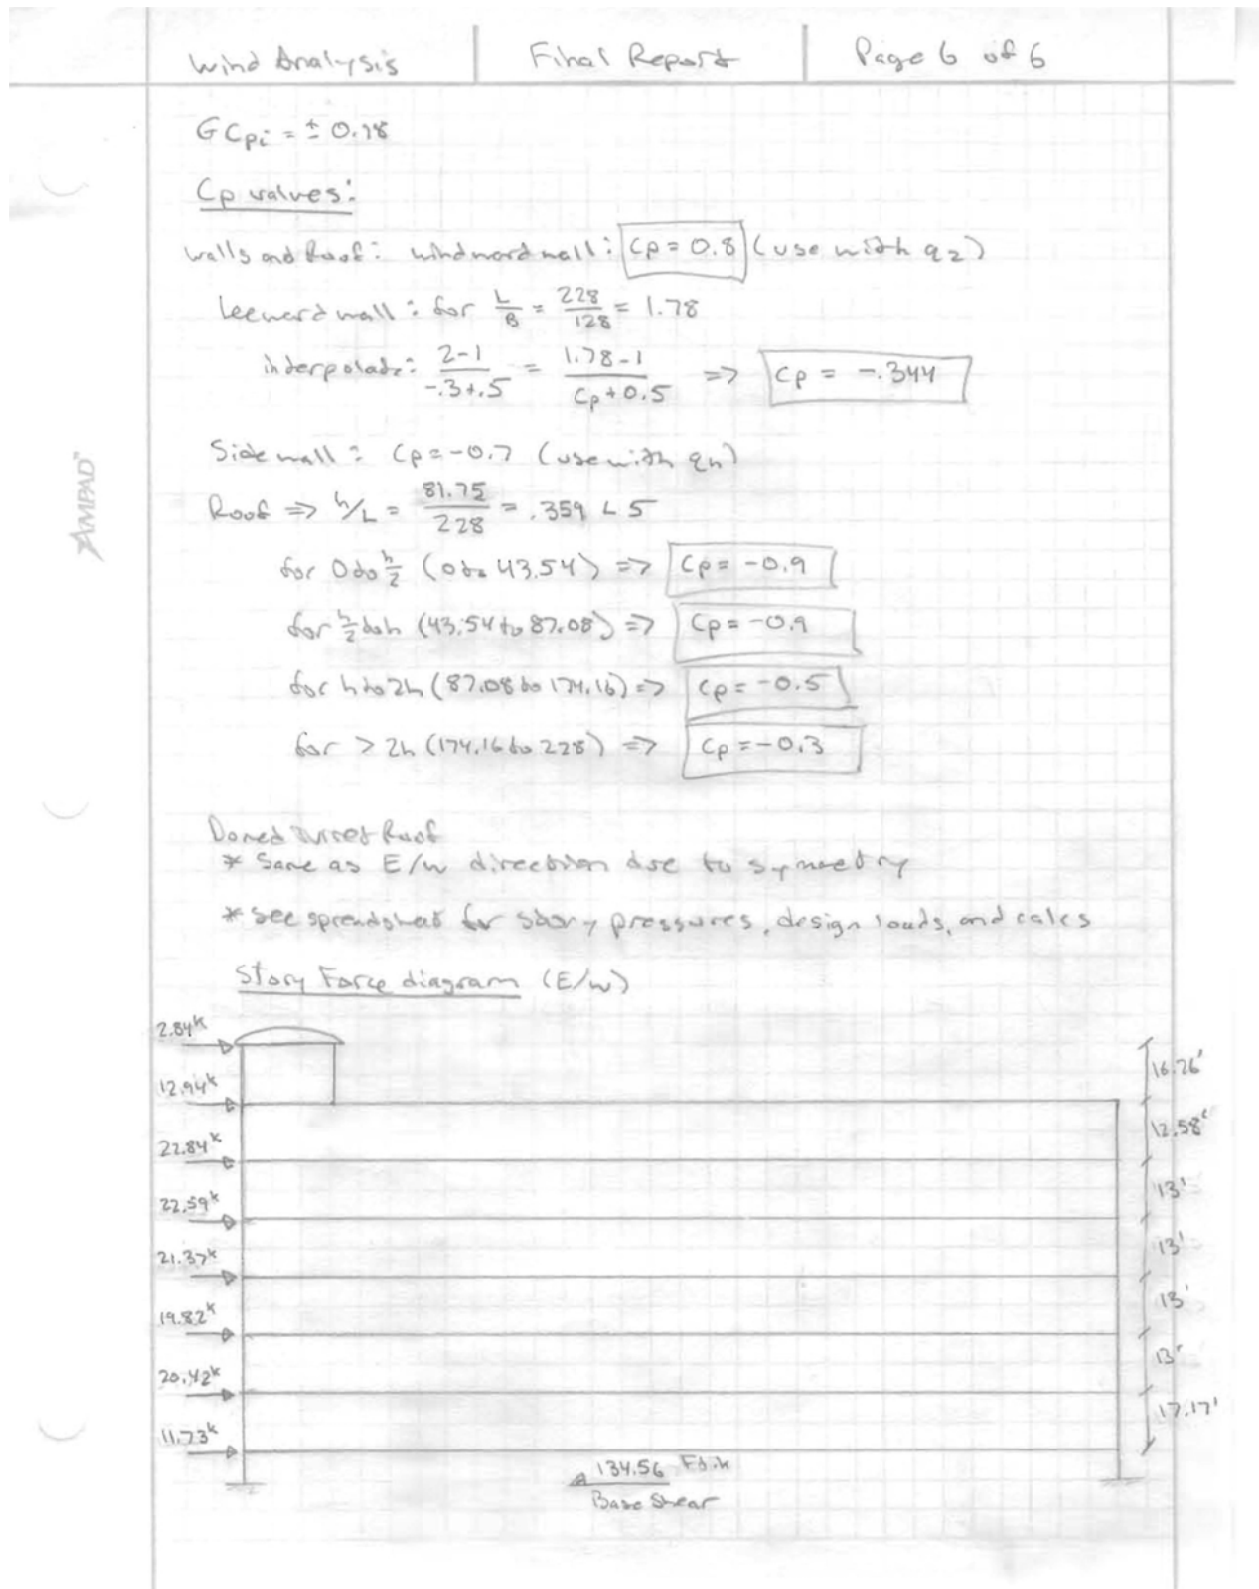 Wind Analysis
Final Report
Page 6 of 6
GCpi = ± 0.18
Cp values:
Walls and Roof: windward wall: Cp = 0.8 (use with qz)
Leeward wall: for L/B = 228/128 = 1.78
interpolate: 2-1/-.3+.5 = 1.78-1/Cp+0.5 => Cp = -.344
Side wall: Cp = -0.7 (use with qh)
Roof => h/L = 81.75/228 = .359 < 5
for 0 to h/2 (0 to 43.54) => Cp = -0.9
for h/2 to h (43.54 to 87.08) => Cp = -0.9
for h to 2h (87.08 to 174.16) => Cp = -0.5
for > 2h (174.16 to 228) => Cp = -0.3
AMPAD™
Domed Turret Roof
* Same as E/W direction due to symmetry
* See spreadsheet for story pressures, design loads, and calcs
Story Force diagram (E/W)
2.84k
16.76'
12.94k
12.58'
22.84k
13'
22.59k
13'
21.37k
13'
19.82k
13'
20.42k
17.17'
11.73k
134.56
Base Shear